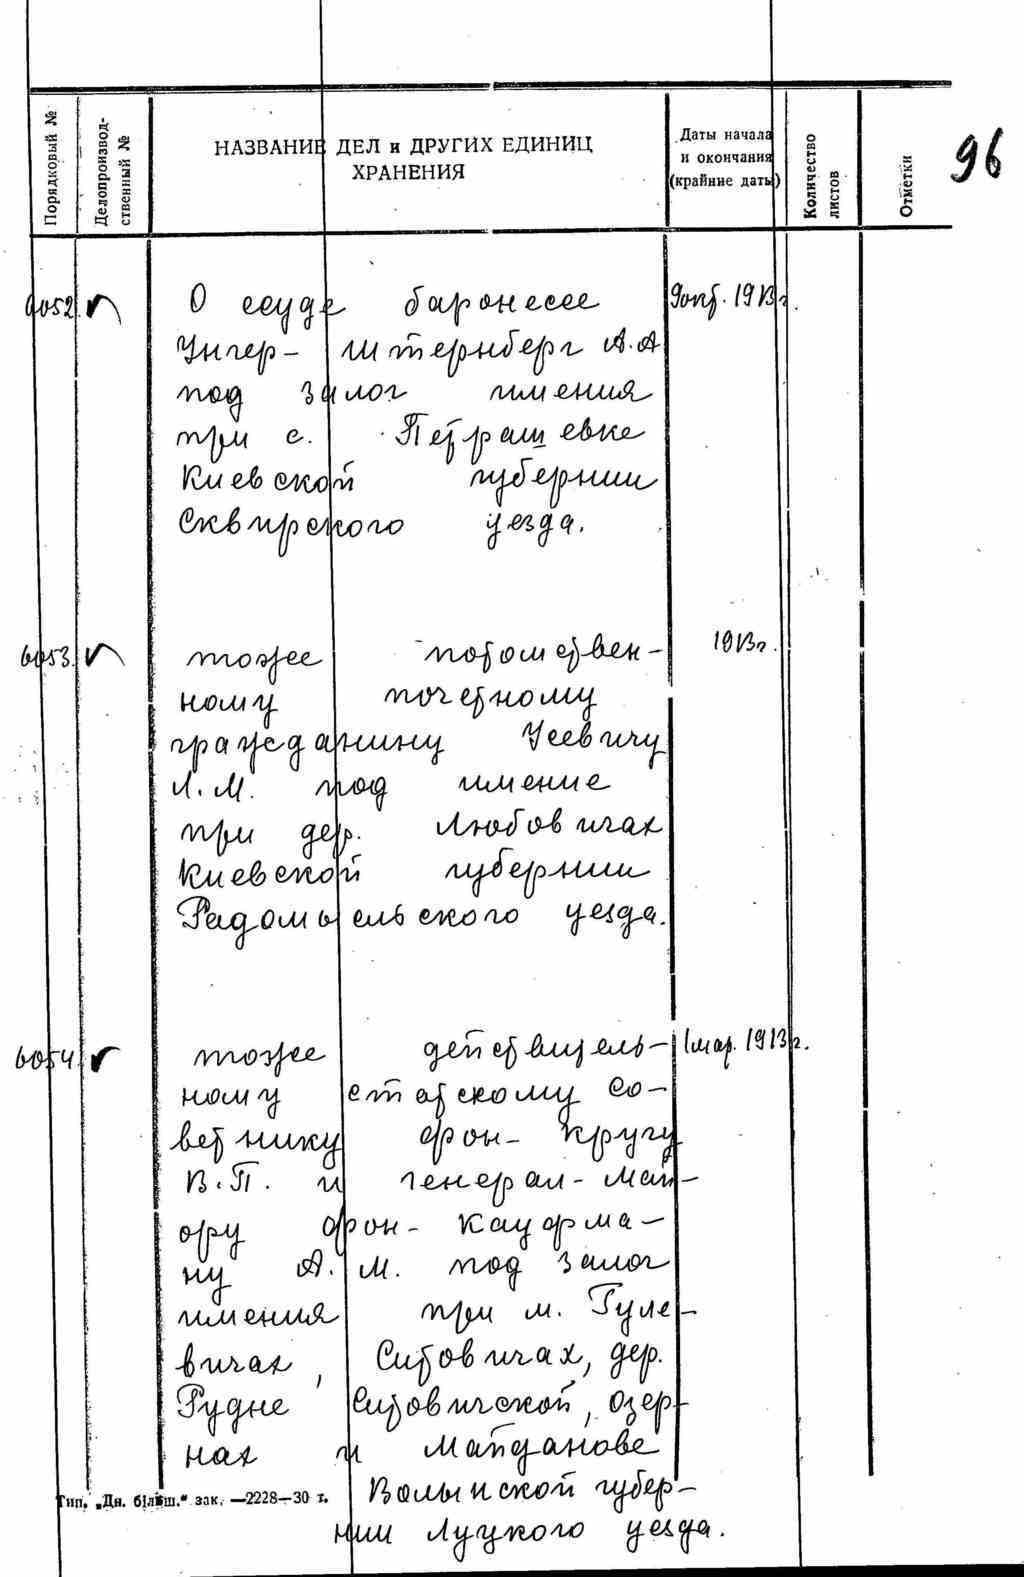 96
Порядковый №
Делопроизвод-
ственный №
НАЗВАНИЕ ДЕЛ и ДРУГИХ ЕДИНИЦ
ХРАНЕНИЯ
Даты начала
и окончания
(крайние даты)
Количество
листов
Отметки
6052. О ссуде баронессе 9 окт. 1913 г.
Унгер- Штернберг А.А
под залог имения
при с. Петрашевке
Киевской губернии
Сквирского уезда.
6053. тоже потомствен- 1913 г.
ному почетному
гражданину Усевичу
Л.М. под имение
при дер. Любовичах
Киевской губернии
Радомысельского уезда.
6054. тоже действитель- 1 мар. 1913 г.
ному статскому со-
ветнику фон- Кругу
В.П. и генерал- май-
ору фон- Кауфма-
ну А.М. под залог
имения при м. Гуле-
вичах, Ситовичах, дер.
Рудне Ситовичской, Озер-
нах и Майданове
Волынской губер-
нии Луцкого уезда.
Тип. „Дн. більш." зак. —2228—30 т.